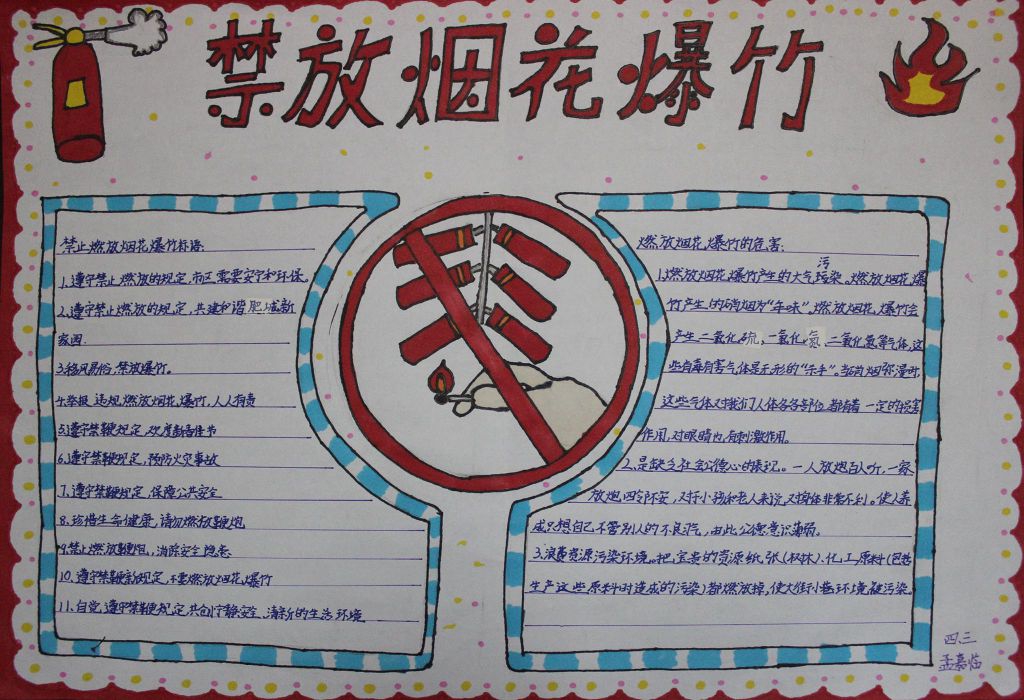 禁放烟花爆竹
禁止燃放烟花爆竹标语:
1.遵守禁止燃放的规定,市区需要安宁和环保。
2.遵守禁止燃放的规定,共建和谐肥城新
家园.
3.移风易俗,禁放爆竹。
4.举报违规燃放烟花爆竹,人人有责
5.遵守禁鞭规定,欢度新春佳节
6.遵守禁鞭规定,预防火灾事故
7、遵守禁鞭规定,保障公共安全
8、珍惜生命健康,请勿燃放鞭炮
9.禁止燃放鞭炮,消除安全隐患
10、遵守禁鞭规定,不要燃放烟花爆竹
11、自觉遵守禁鞭规定共创宁静安全、清新的生活环境
燃放烟花爆竹的危害:
1.燃放烟花爆竹产生的大气污染。燃放烟花爆
竹产生的硝烟为“年味”。燃放烟花爆竹会
产生二氧化硫、一氧化氮、二氧化氮等气体,这
些有毒有害气体是无形的“杀手”。当硝烟弥漫时,
这些气体对我们人体各各部位都有着一定的损害
作用,对眼睛也有刺激作用。
2.是缺乏社会公德心的表现。一人放炮百人听,一家
放炮四邻不安,对小孩和老人来说,对身体非常不利。使人养
成只想自己不管别人的不良习气,由此公德意识薄弱。
3.浪费资源污染环境。把宝贵的资源纸张(树林)、化工原料(包括
生产这些原料时造成的污染)都燃放掉,使大街小巷环境被污染。
四.三
孟嘉临